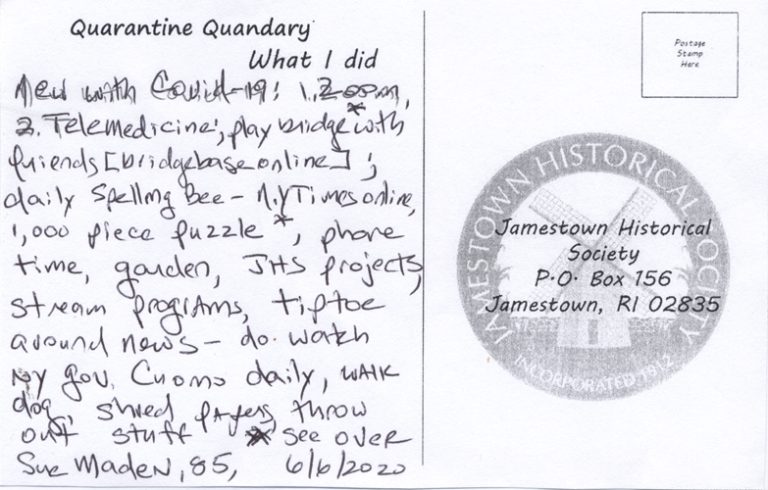 Quarantine Quandary
What I did
New with Covid-19: 1. Zoom,
2. Telemedicine; play bridge* with
friends [bridgebaseonline];
daily Spelling Bee – N.Y Times online,
1,000 piece puzzle*, phone
time, garden, JHS projects,
stream programs, tiptoe
around news – do watch
NY gov. Cuomo daily, walk
dog, shred papers, throw
out stuff * see over
Sue Maden, 85, 6/6/2020
Postage
Stamp
Here
JAMESTOWN HISTORICAL SOCIETY
Jamestown Historical
Society
P.O. Box 156
Jamestown, RI 02835
INCORPORATED 1912